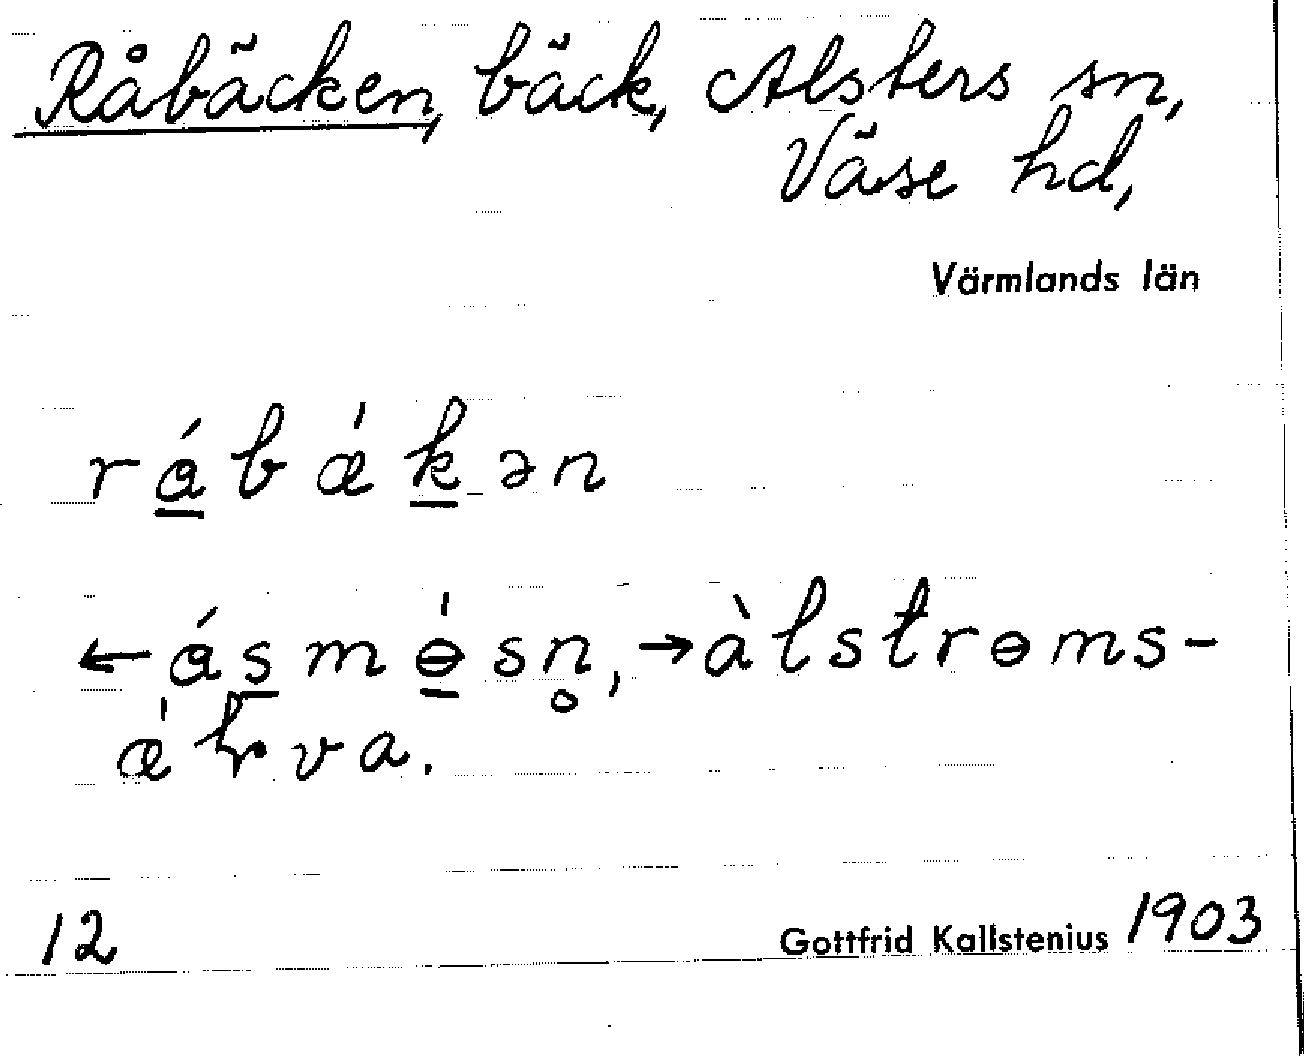 Råbäcken, bäck, Alsters sn,
Väse hd,
Värmlands län
rá̱bǽḵən
←ás̱mɵ̱́sn̥, →àlstrɵms-
ǽɽva.
12 Gottfrid Kallstenius 1903